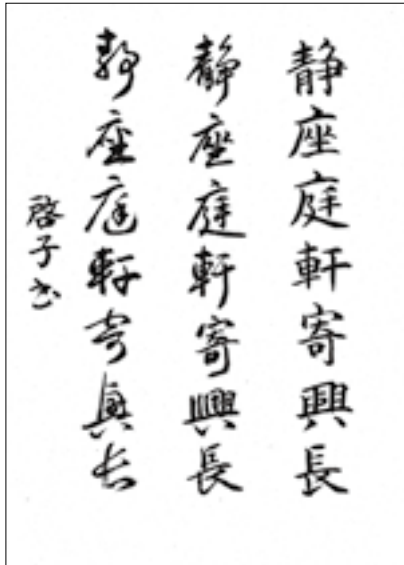 静座庭軒寄興長
静座庭軒寄興長
静座庭軒寄興長
啓子書